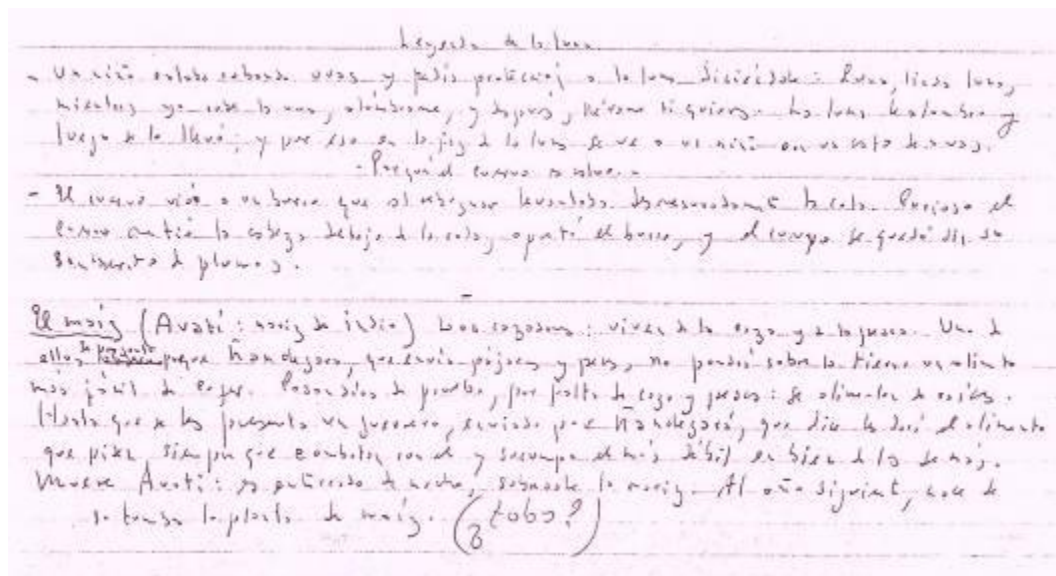 Leyenda de la luna
- Un niño estaba robando uvas y pidió protección a la luna diciéndole: Luna, linda luna,
mientras yo robe la uva, alúmbrame, y después, llévame si quieres. La luna le alumbró y
luego se lo llevó; y por eso en la faz de la luna se ve a un niño con un cesto de uvas.
- Porqué el cuervo es
- El cuervo vió a un burro que al rebuznar levantaba desmesuradamente la cola. Curioso el
cuervo metió la cabeza debajo de la cola, apretó el burro, y el cuervo se quedó sin su
de plumas.
El maíz (Avatí: maíz de indio) Dos cazadores: viven de la caza y de la pesca. Uno de
ellos se pregunta porque Ñandeyara, que envía pájaros y peces, no pondrá sobre la tierra un alimento
más fácil de coger. Pasan días de prueba, por falta de caza y pesca: se alimentan de raíces.
Hasta que se les presenta un guerrero, enviado por Ñandeyará, que dice les dará el alimento
que piden, siempre que combatan con él y sucumba el más débil en bien de los demás.
Muere Avatí: es enterrado de noche, sobresale la nariz. Al año siguiente, nace de
su tumba la planta de maíz. (tobs?)